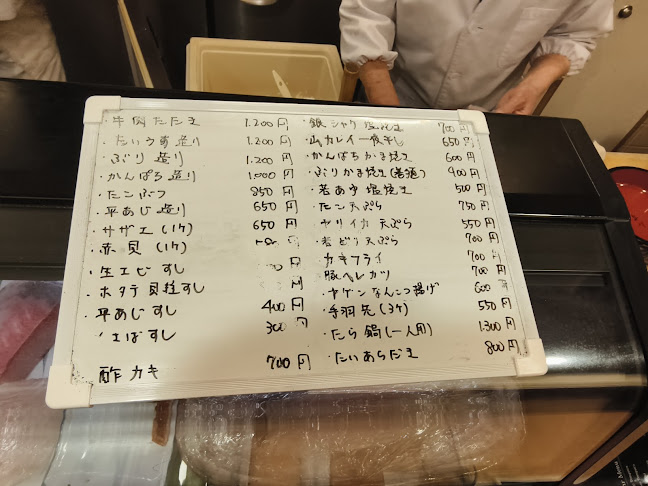 ・牛肉たたき 1,200円
・たいうす造り 1,200円
・ぶり造り 1,200円
・かんぱち造り 1,000円
・たこぶつ 850円
・平あじ造り 650円
・サザエ(1ケ) 650円
・赤貝(1ケ) 円
・生エビすし 円
・ホタテ貝柱すし 円
・平あじすし 400円
・さばすし 300円
酢カキ 700円
・銀シャケ塩焼き 700円
・山カレイ一夜干し 650円
・かんぱちかま焼き 600円
・ぶりかま焼き 900円
・若あゆ塩焼き 500円
・たこ天ぷら 750円
・ヤリイカ天ぷら 550円
・若どり天ぷら 700円
・カキフライ 700円
・豚ヘレカツ 700円
・ヤゲンなんこつ揚げ 600円
・手羽先(3ケ) 550円
・たら鍋(一人用) 1,300円
・たいあらだき 800円